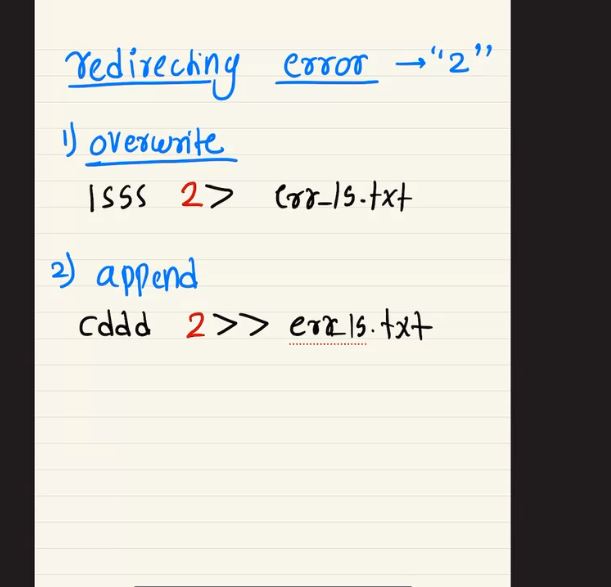 redirecting error → "2"
1) overwrite
lsss 2> err_ls.txt
2) append
cddd 2>> err_ls.txt